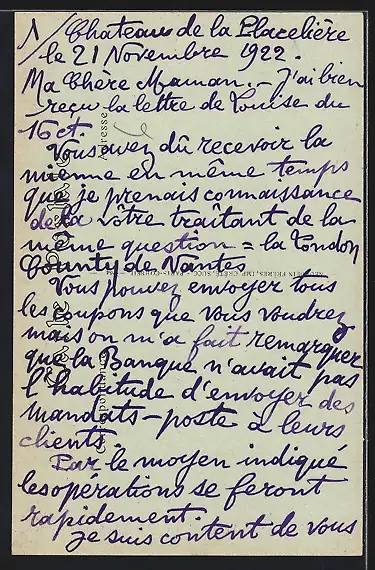 1/ Chateau de la Placelière
le 21 Novembre 1922.
Ma Chère Maman.- J'ai bien
reçu la lettre de Louise du
16 ct.
Vous avez dû recevoir la
mienne en même temps
que je prenais connaissance
de la vôtre traitant de la
même question = la London
County de Nantes
Vous pouvez envoyer tous
les coupons que vous voudrez
mais on m'a fait remarquer
que la Banque n'avait pas
l'habitude d'envoyer des
mandats-poste à leurs
clients.
Par le moyen indiqué
les opérations se feront
rapidement.
Je suis content de vous
Adresse
Correspondance